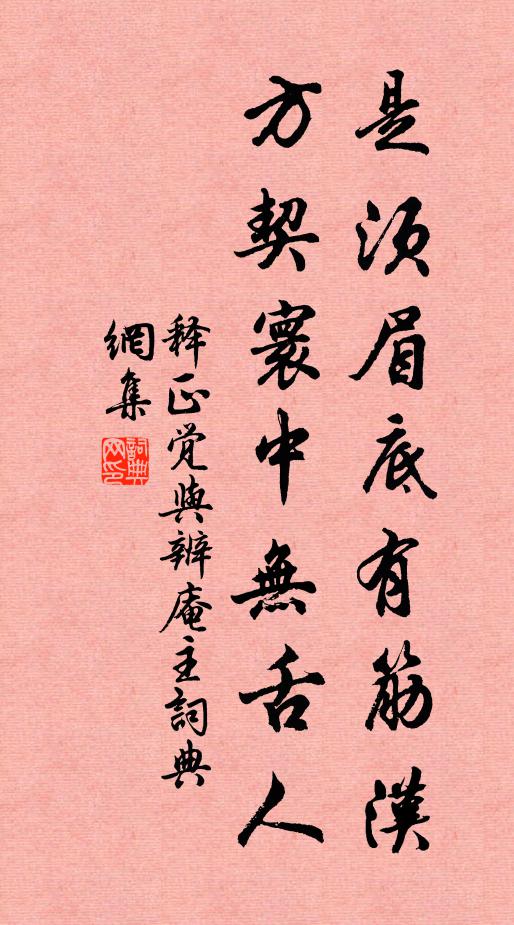 是須眉底有筋漢
方契寰中無舌人
释正覺與辨庵主詞典
網集
詞典
网印